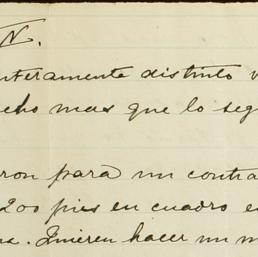 N.
nteramente distinto v
cho mas que lo seg
ron para un contra
200 pies en cuadro e
a. Quieren hacer un m